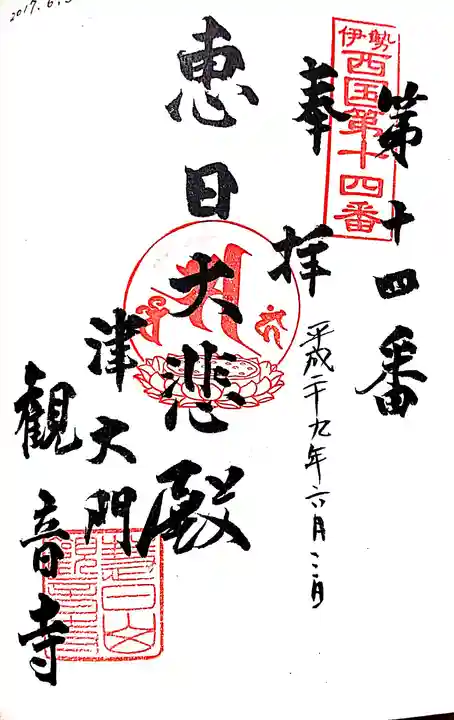 2017.6.3
伊勢
西国第十四番
第十四番
奉拝
平成二十九年六月三日
恵日大悲殿
津大門
観音寺